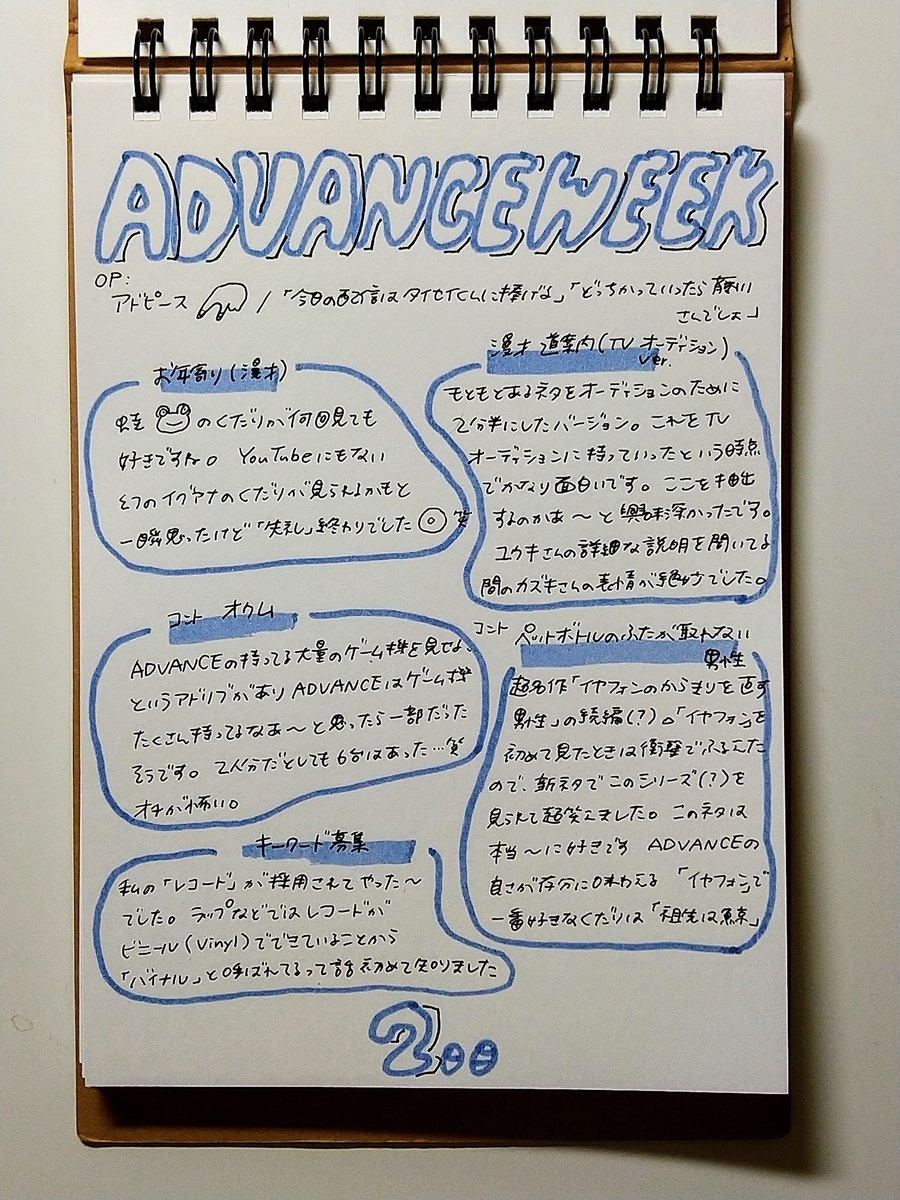 ADVANCEWEEK
OP:
アドピース / 「今日の配信はタイセイくんに捧げな」「どっちかっていったら藤川
さんでしょ」
お年寄り(漫才)
蛙のくだりが何回見ても
好きですね。 YouTubeにもない
2つのイグアナのくだりが見られるかもと
一瞬思ったけど「失礼」終わりでした 笑
漫才 道案内(TV オーディション
ver.)
もともとあるネタをオーディションのために
2分半にしたバージョン。これをTV
オーディションに持っていったという時点
でかなり面白いです。ここを抽出
するのかあ〜と興味深かったです。
ユウキさんの詳細な説明を聞いてる
間のカズキさんの表情が絶妙でした。
コント オクム
ADVANCEの持ってる大量のゲーム機を見せる
というアドリブがありADVANCEはゲーム機
たくさん持ってるなあ〜と思ったら一部だった
そうです。 2人分だとしても6台はあった…笑
オチが怖い。
コント ペットボトルのふたが取れない
男性
超名作「イヤフォンのからまりを直す
男性」の続編(?)。「イヤフォン」を
初めて見たときは衝撃でふるえた
ので、新ネタでこのシリーズ(?)を
見られて超笑えました。このネタは
本当〜に好きです ADVANCEの
良さが存分に味わえる 「イヤフォン」で
一番好きなくだりは「祖先は魚」
キーワード募集
私の「レコード」が採用されてやった〜
でした。ラップなどではレコードが
ビニール(Vinyl)でできていることから
「バイナル」と呼ばれてるって話初めて知りました
200